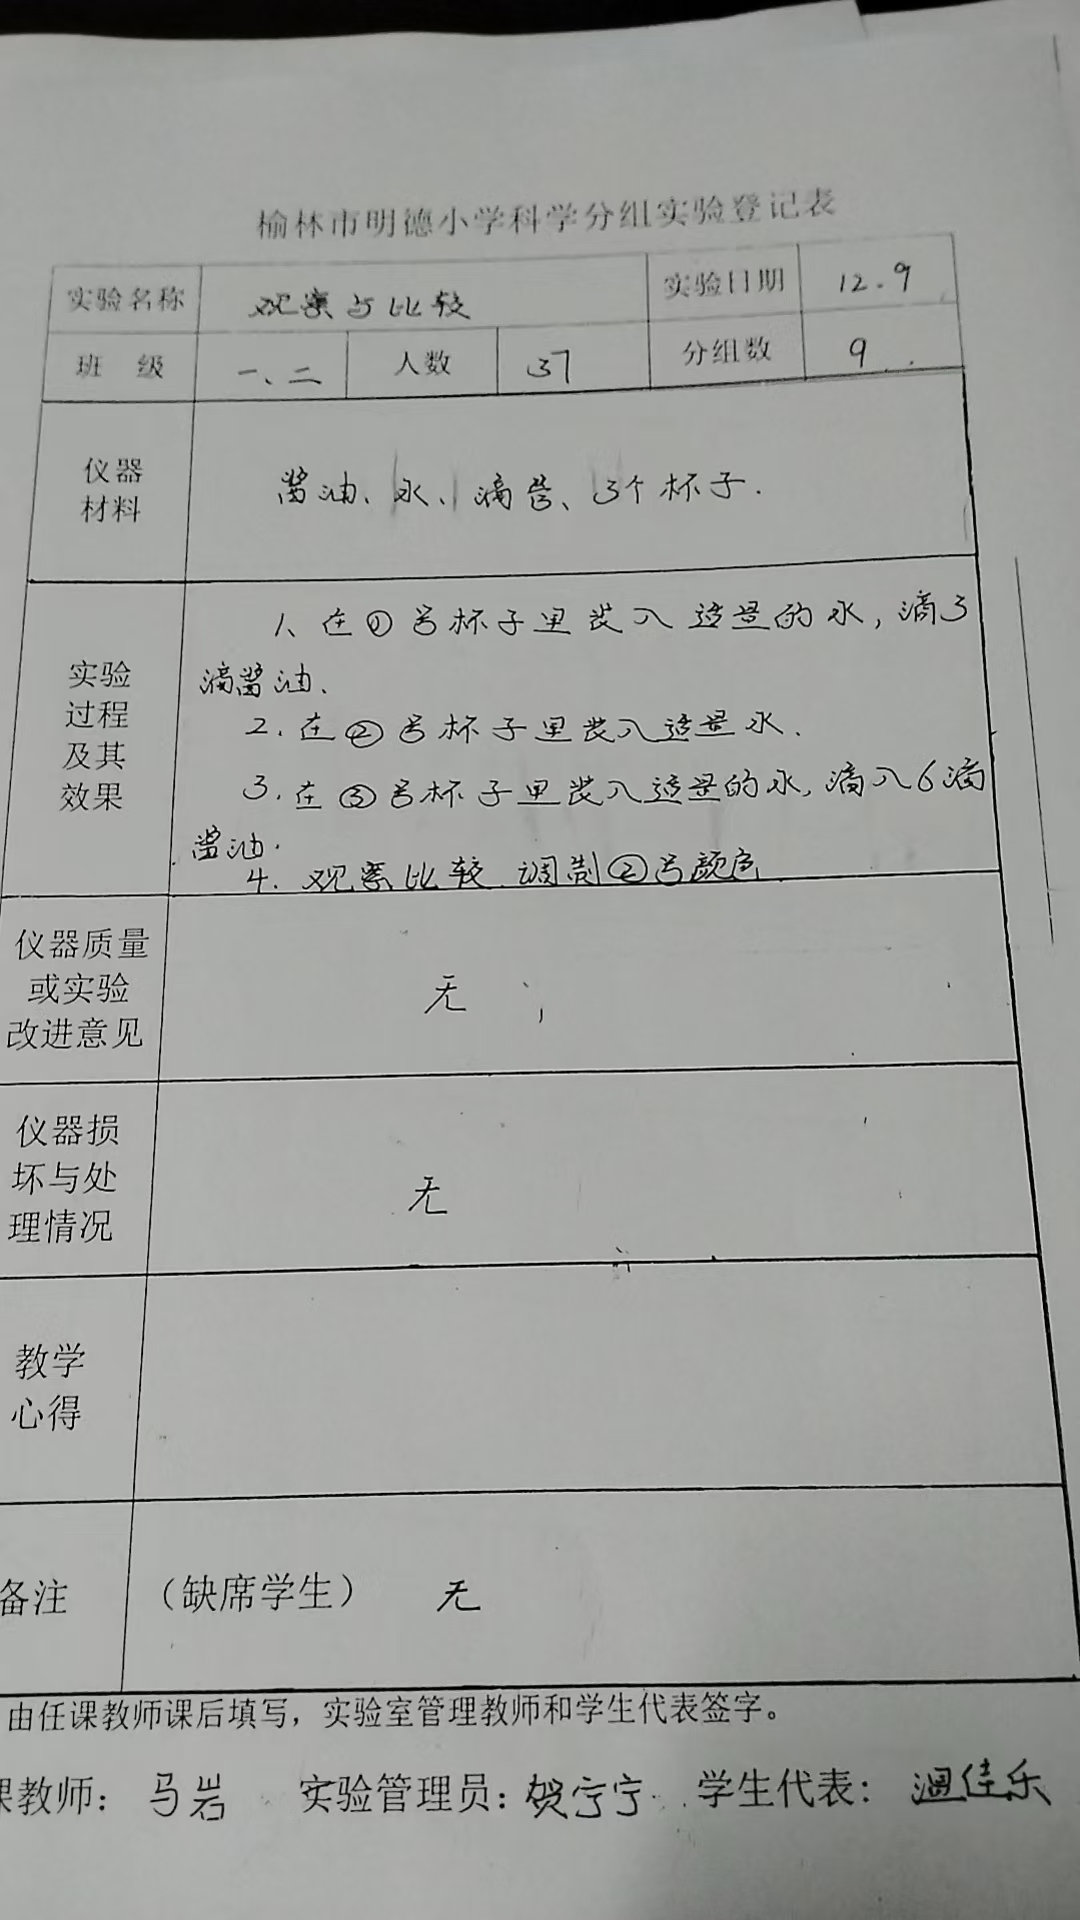 榆林市明德小学科学分组实验登记表
实验名称 观察与比较 实验日期 12.9
班 级 一、二 人数 37 分组数 9
仪器
材料
酱油、水、滴管、3个杯子.
实验
过程
及其
效果
1、在①号杯子里装入适量的水,滴3
滴酱油.
2.在②号杯子里装入适量水.
3.在③号杯子里装入适量的水,滴入6滴
酱油.
4.观察比较 调制②号颜色
仪器质量
或实验
改进意见
无
仪器损
坏与处
理情况
无
教学
心得
备注 （缺席学生） 无
由任课教师课后填写，实验室管理教师和学生代表签字。
课教师：马岩 实验管理员：贺宁宁 学生代表：温佳乐